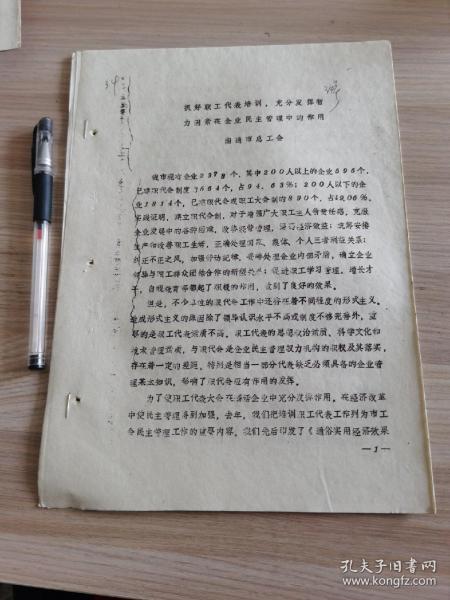 抓好职工代表培训，充分发挥智
力因素在企业民主管理中的作用
南通市总工会
我市现有企业2378个，其中200人以上的企业596个，
企业1814个，已建职代会或职工大会制的890个，占49.06%。
实践证明，建立职代会制，对于增强广大职工主人翁责任感，克服
企业发展中的各种困难，改善经营管理，提高经济效益；统筹安排
生产和改善职工生活，正确处理国家、集体、个人三者利益关系；
纠正不正之风，加强劳动纪律，妥善处理企业内部矛盾，确立企业
领导与职工群众团结合作的新型关系；促进职工学习管理，增长才
干，自我教育等都起了积极的作用，收到了良好的效果。
但是，不少单位的职代会工作中还存在着不同程度的形式主义。
造成形式主义的原因除了领导认识水平不高或制度不够完善外，重
要的是职工代表素质不高。职工代表的思想政治素质、科学文化和
技术管理素质，与职代会是企业民主管理权力机构的职权及其落实，
存在着一定的差距。特别是相当一部分代表缺乏必须具备的企业管
理基本知识，影响了职代会应有作用的发挥。
为了使职工代表大会在搞活企业中充分发挥作用，在经济改革
中使民主管理得到加强。去年，我们把培训职工代表工作列为市工
会民主管理工作的重要内容。我们先后印发了《通俗实用经济效果
—1—
孔夫子旧书网
www.kongfz.com